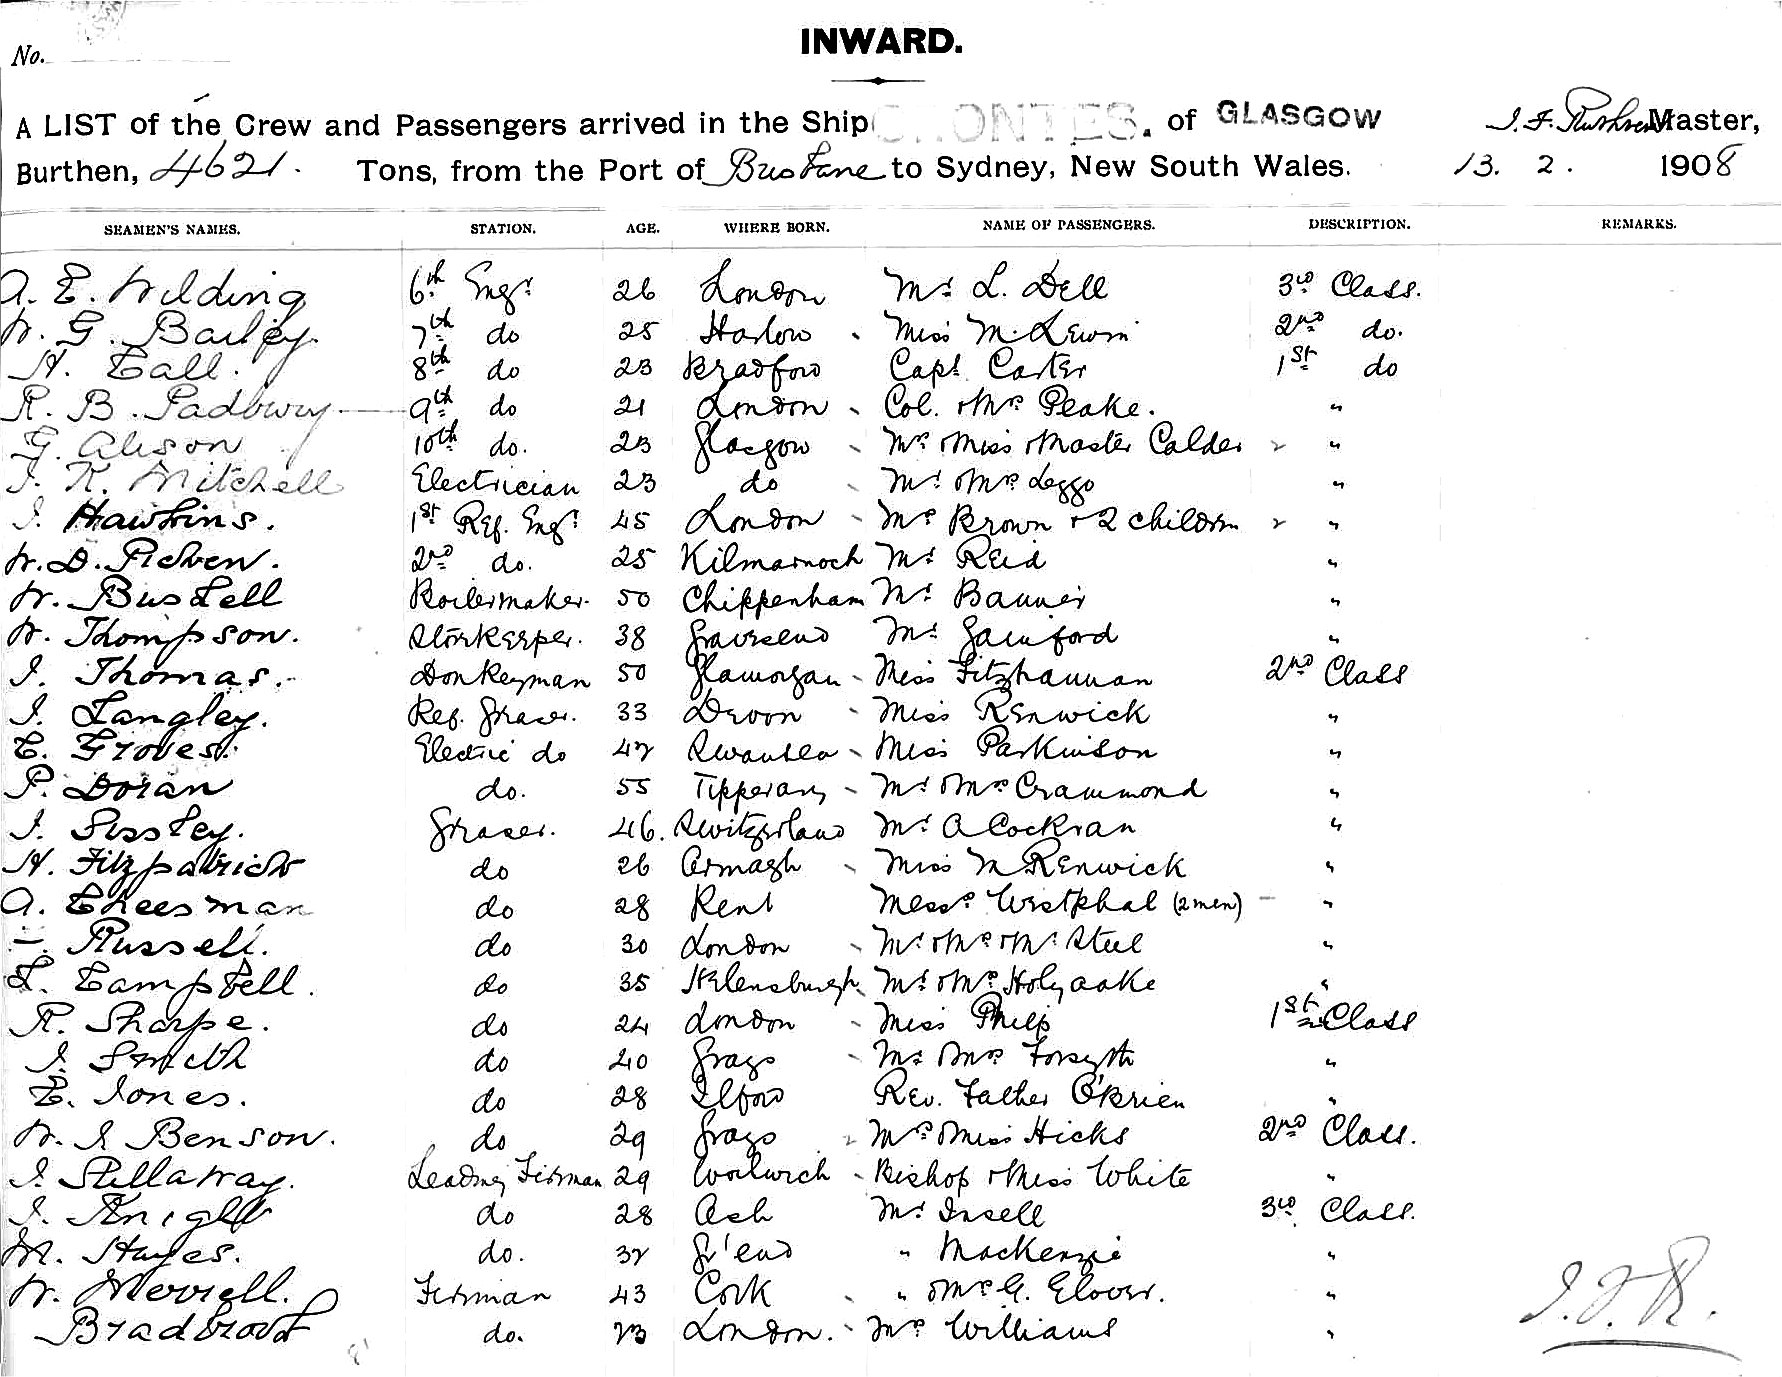 No.
INWARD.
A LIST of the Crew and Passengers arrived in the Ship ORONTES. of GLASGOW Master,
Burthen, 4621. Tons, from the Port of Brisbane to Sydney, New South Wales. 13. 2. 1908
SEAMEN'S NAMES. STATION. AGE. WHERE BORN. NAME OF PASSENGERS. DESCRIPTION. REMARKS.
A. E. Wilding 6th Engr 26 London Mr L. Dell 3rd Class.
W. G. Bailey. 7th do 25 Harlow Miss M. Lewin 2nd do.
H. Call. 8th do 23 Bradford Capt. Carter 1st do
R. B. Padbury 9th do 21 London Col. & Mrs Peake. "
G. Alison 10th do. 23 Glasgow Mrs Miss & Master Calder "
J. K. Mitchell Electrician 23 do Mr & Mrs Leggo "
J. Hawkins. 1st Ref. Engr 45 London Mrs Brown & 2 children "
W. D. 2nd do. 25 Kilmarnock Mr Reid "
W. Bushell Boilermaker. 50 Chippenham Mr "
W. Thompson. Storekeeper. 38 Gravesend Mr Gainford "
J. Thomas. Donkeyman 50 Glamorgan Miss Fitzhannan 2nd Class
J. Langley. Ref. Greaser. 33 Devon Miss Renwick "
C. Groves. Electric do 47 Swansea Miss Parkinson "
P. Doran do. 55 Tipperary Mr & Mrs Crammond "
J. Greaser. 46. Switzerland Mr A Cockran "
H. Fitzpatrick do 26 Armagh Miss M Renwick "
A. Cheesman do 28 Kent Messrs Westphal (2 men) "
—. Russell. do 30 London Mr & Mrs & Mr Steel "
L. Campbell. do 35 Helensburgh Mr & Mrs Holyoake "
R. Sharpe. do 24 London Miss Philp 1st Class
J. Smith do 40 Grays Mr & Mrs Forsyth "
E. Jones. do 28 Ilford Rev. Father O'Brien "
W. J Benson. do 29 Grays Mrs & Miss Hicks 2nd Class.
J. Stillaway. Leading Fireman 29 Woolwich Bishop & Miss White "
J. Knight do 28 Ash Mr Insell 3rd Class.
M. Hayes. do. 37 Gr'end " Mackenzie "
W. Merrell. Fireman 43 Cork " & Mrs G. Glover. "
Bradbrook do. 23 London. Mrs Williams "
J.F.R.